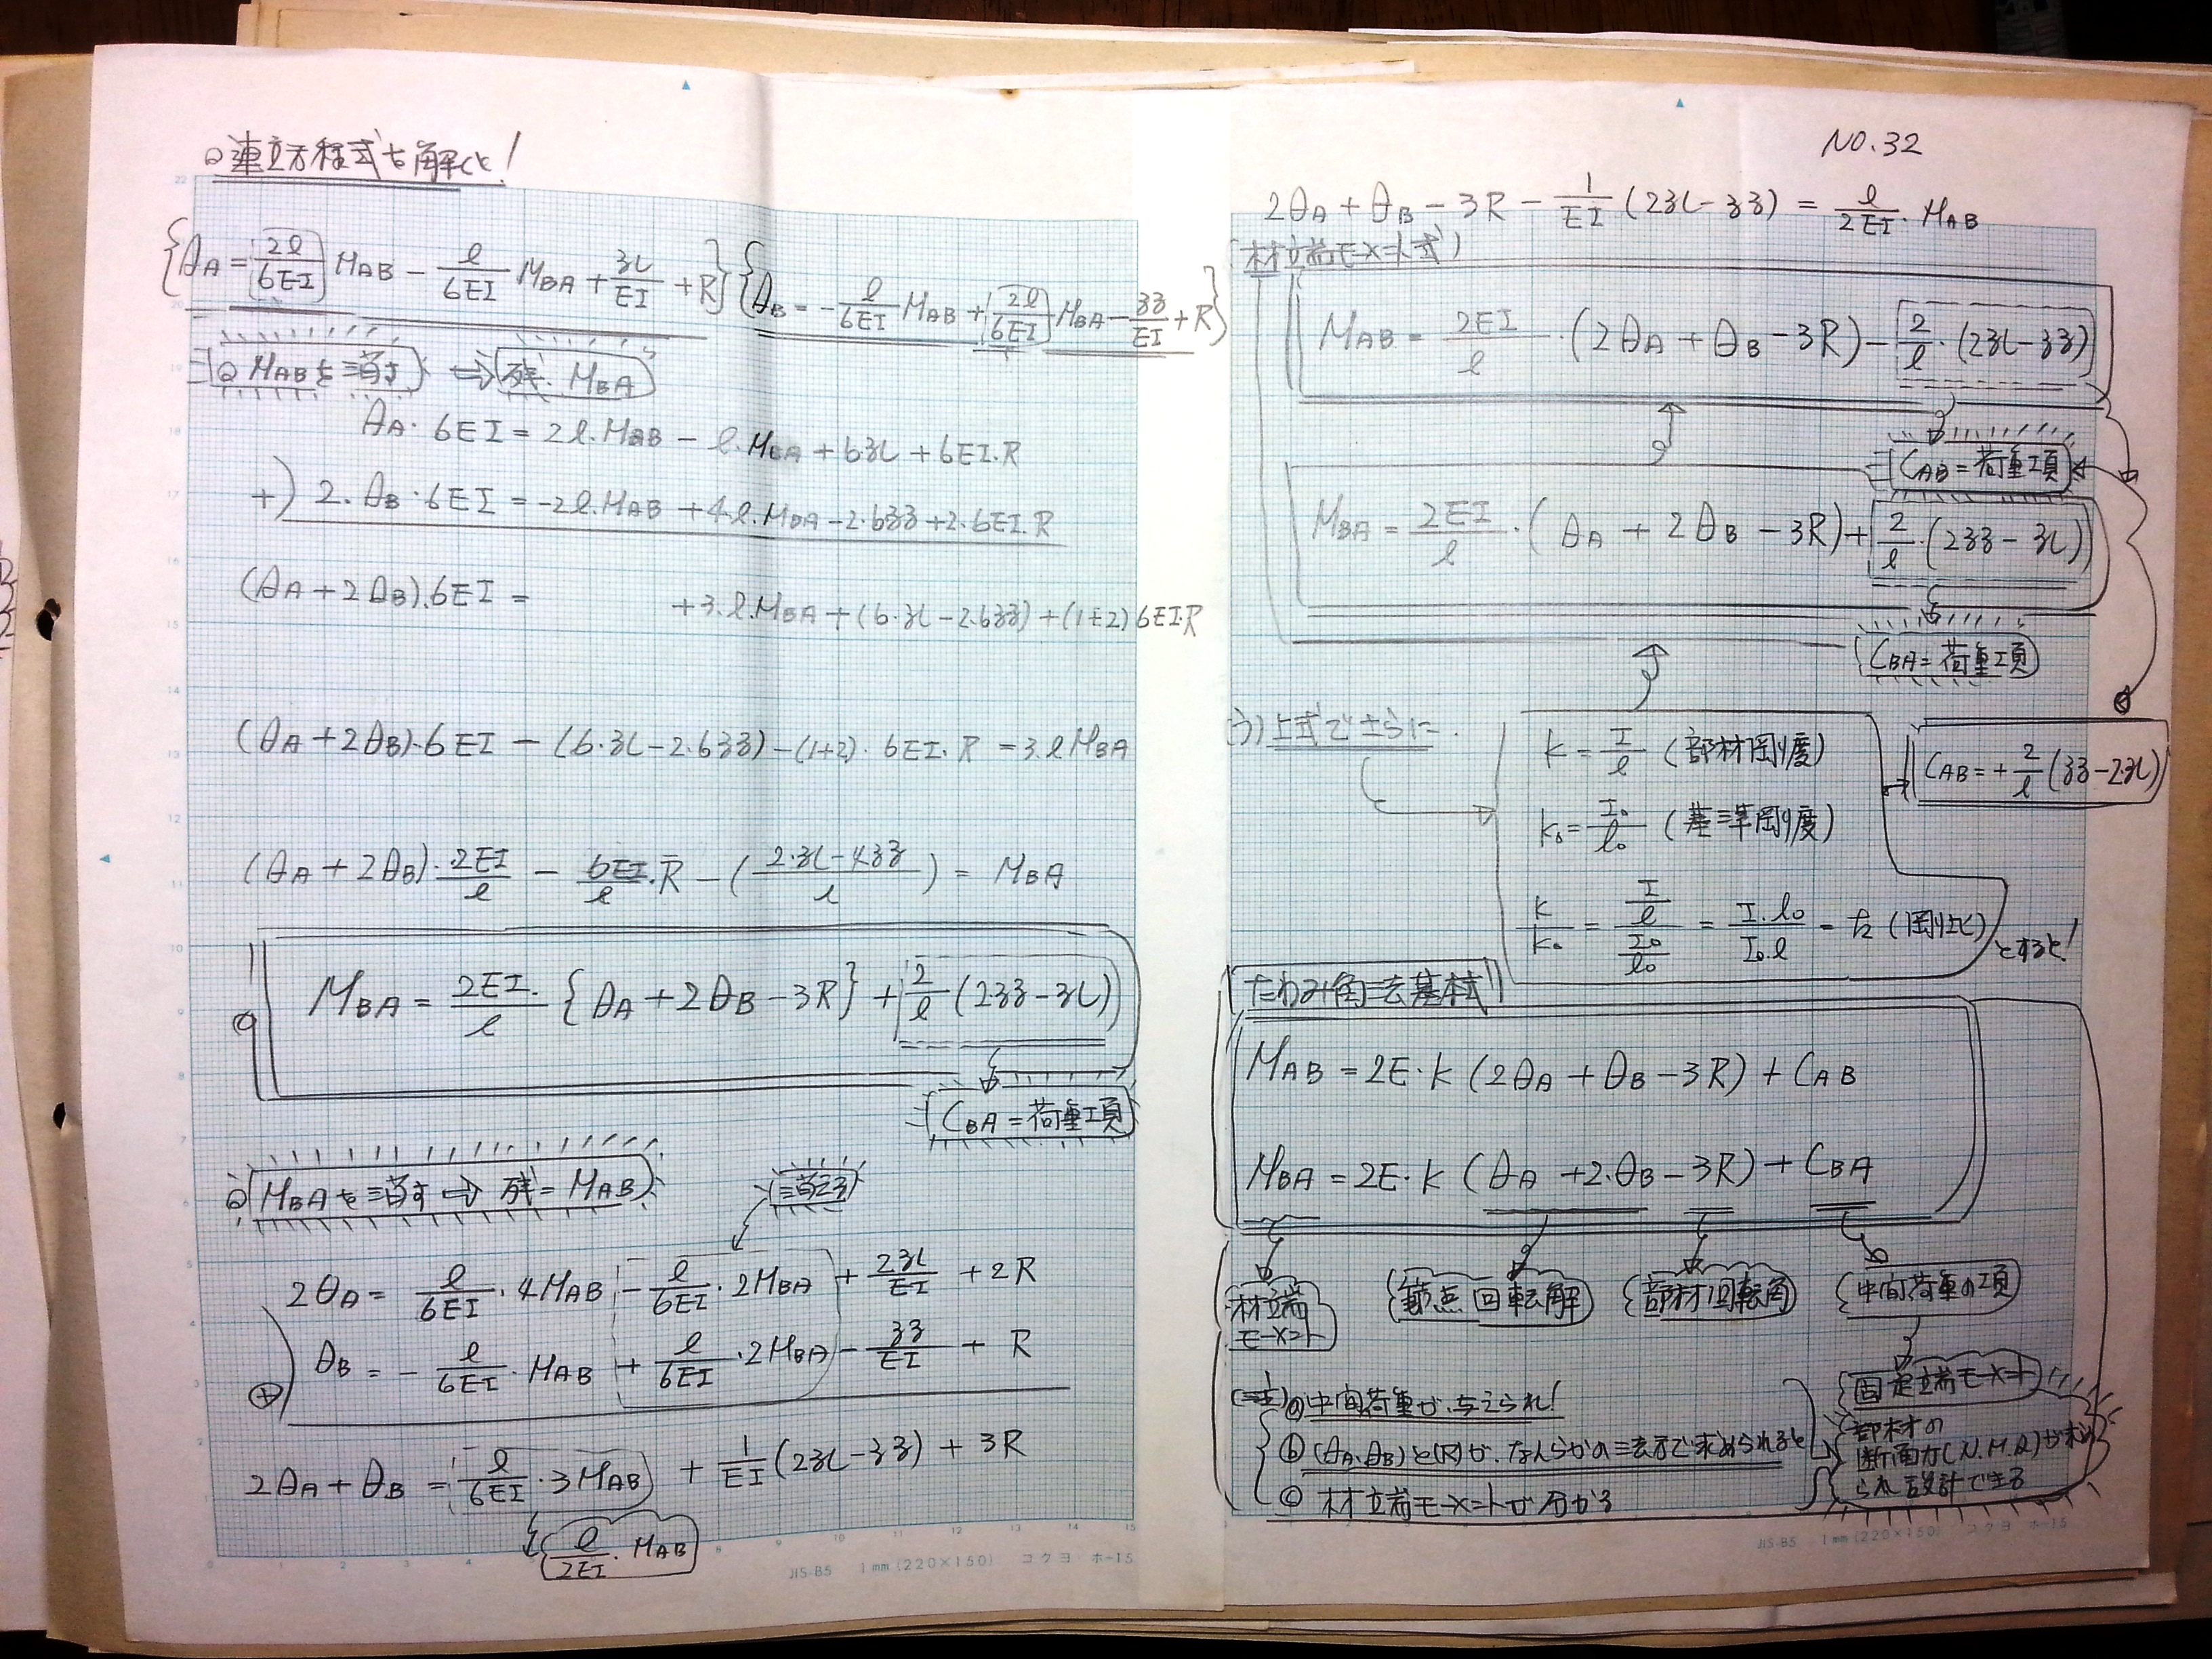 連立方程式を解くと!
{θA = 2ℓ/6EI MAB − ℓ/6EI MBA + ʒL/EI + R} {θB = − ℓ/6EI MAB + 2ℓ/6EI MBA − ʒʒ/EI + R}
◎ MABを消す ⇒ 残. MBA
θA・6EI = 2ℓ.MAB − ℓ.MBA + 6ʒL + 6EI.R
+) 2.θB・6EI = -2ℓ.MAB + 4ℓ.MBA − 2.6ʒʒ + 2.6EI.R
(θA + 2θB).6EI = +3.ℓ.MBA + (6.ʒL − 2.6ʒʒ) + (1+2) 6EI.R
(θA + 2θB)・6EI − (6.ʒL − 2.6ʒʒ) − (1+2)・6EI.R = 3.ℓMBA
(θA + 2θB)・2EI/ℓ − 6EI/ℓ.R − (2.ʒL − 4ʒʒ/ℓ) = MBA
MBA = 2EI/ℓ {θA + 2θB − 3R} + 2/ℓ (2ʒʒ − ʒL)
CBA = 荷重項
◎ MBAを消す ⇒ 残 = MAB
消える
2θA = ℓ/6EI・4MAB − ℓ/6EI・2MBA + 2ʒL/EI + 2R
⊕) θB = − ℓ/6EI・MAB + ℓ/6EI・2MBA − ʒʒ/EI + R
2θA + θB = ℓ/6EI・3MAB + 1/EI (2ʒL − ʒʒ) + 3R
ℓ/2EI・MAB
JIS-B5 1mm (220×150) コクヨ ホ-15
NO.32
2θA + θB − 3R − 1/EI (2ʒL − ʒʒ) = ℓ/2EI・MAB
(材端モーメント式)
MAB = 2EI/ℓ・(2θA + θB − 3R) − 2/ℓ・(2ʒL − ʒʒ)
CAB = 荷重項
MBA = 2EI/ℓ・(θA + 2θB − 3R) + 2/ℓ・(2ʒʒ − ʒL)
CBA = 荷重項
上式でさらに.
K = I/ℓ (部材剛度)
CAB = + 2/ℓ (ʒʒ − 2ʒL)
K₀ = I₀/ℓ₀ (基準剛度)
K/K₀ = I/ℓ / I₀/ℓ₀ = I.ℓ₀/I₀.ℓ = k (剛比) とすると!
たわみ角法基本式
MAB = 2E・K (2θA + θB − 3R) + CAB
MBA = 2E・K (θA + 2.θB − 3R) + CBA
材端モーメント
節点回転解
部材回転角
中間荷重の項
固定端モーメント
(注) ⓐ 中間荷重が.与えられ!
ⓑ (θA.θB)と(R)が.なんらかの方法で求められると
ⓒ 材端モーメントが分かる
部材の
断面力(N.M.Q)が求め
られ設計できる
JIS-B5 1mm (220×150) コクヨ ホ-15